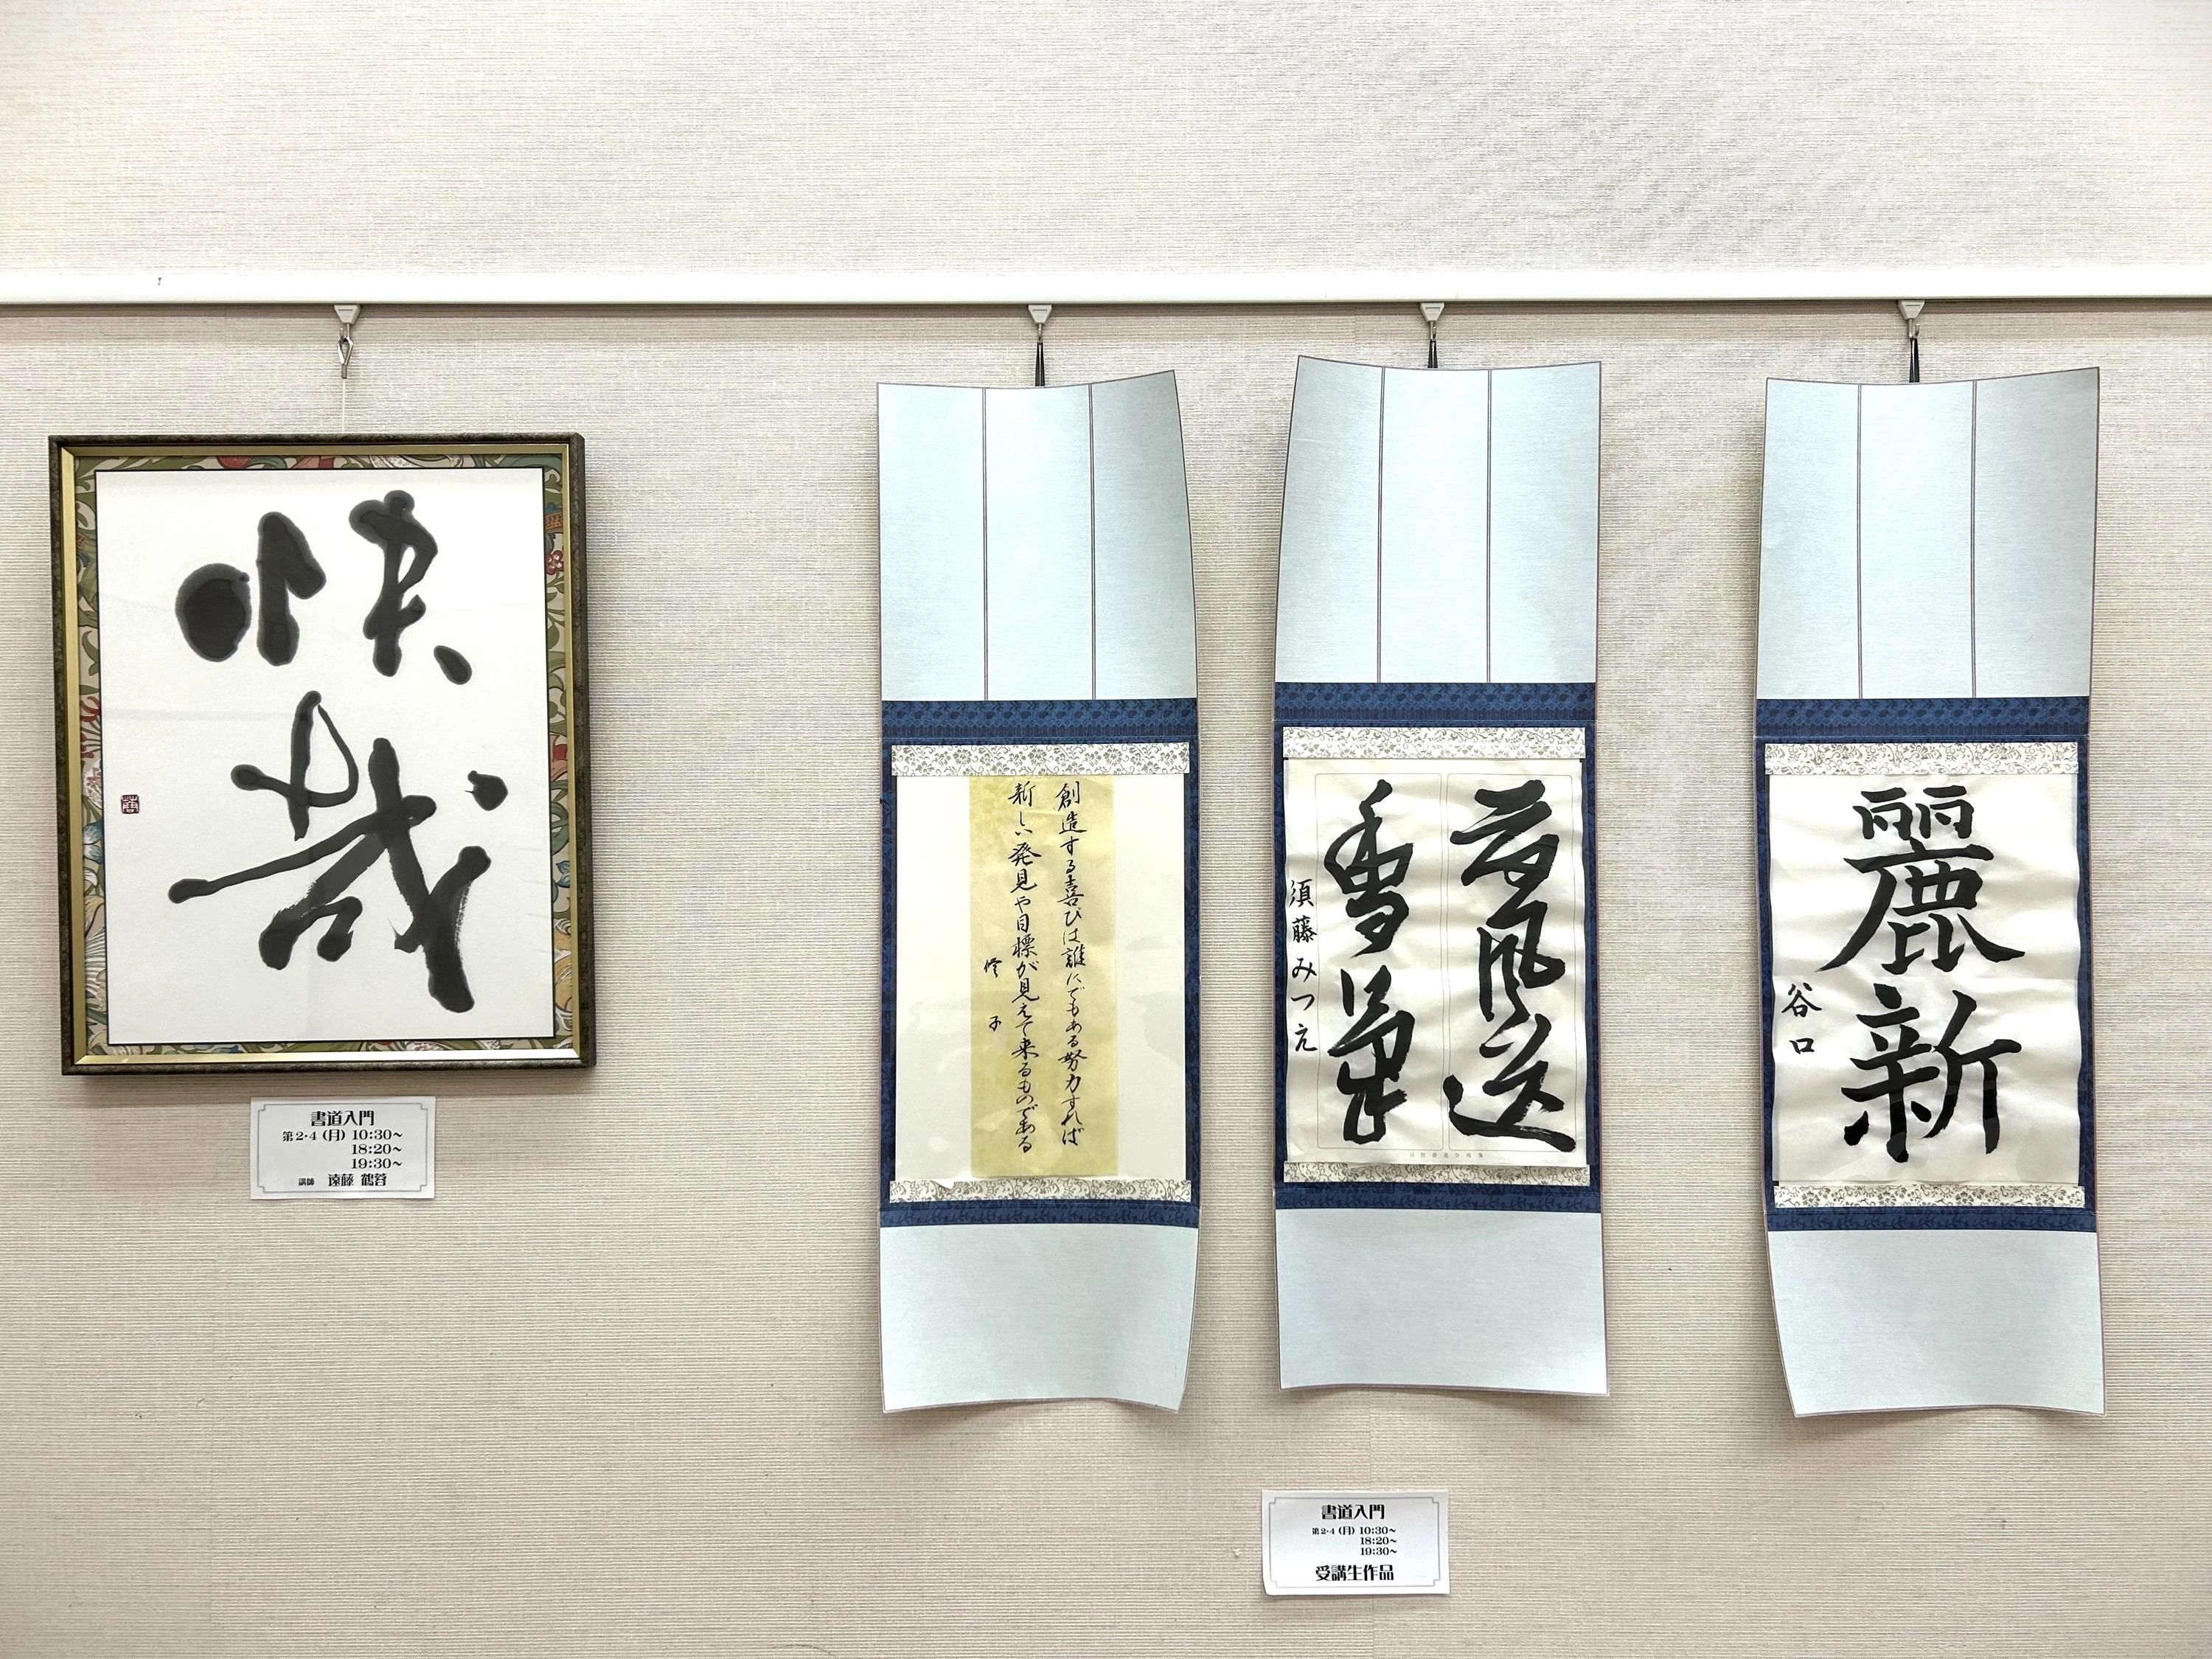 快哉
書道入門
第2・4（月）10:30〜
18:20〜
19:30〜
講師 遠藤 鶴蓉
創造する喜びは誰にでもある努力すれば
新しい発見や目標が見えて来るものである
修子
風送
香
須藤みつえ
麗新
谷口
書道入門
第2・4（月）10:30〜
18:20〜
19:30〜
受講生作品